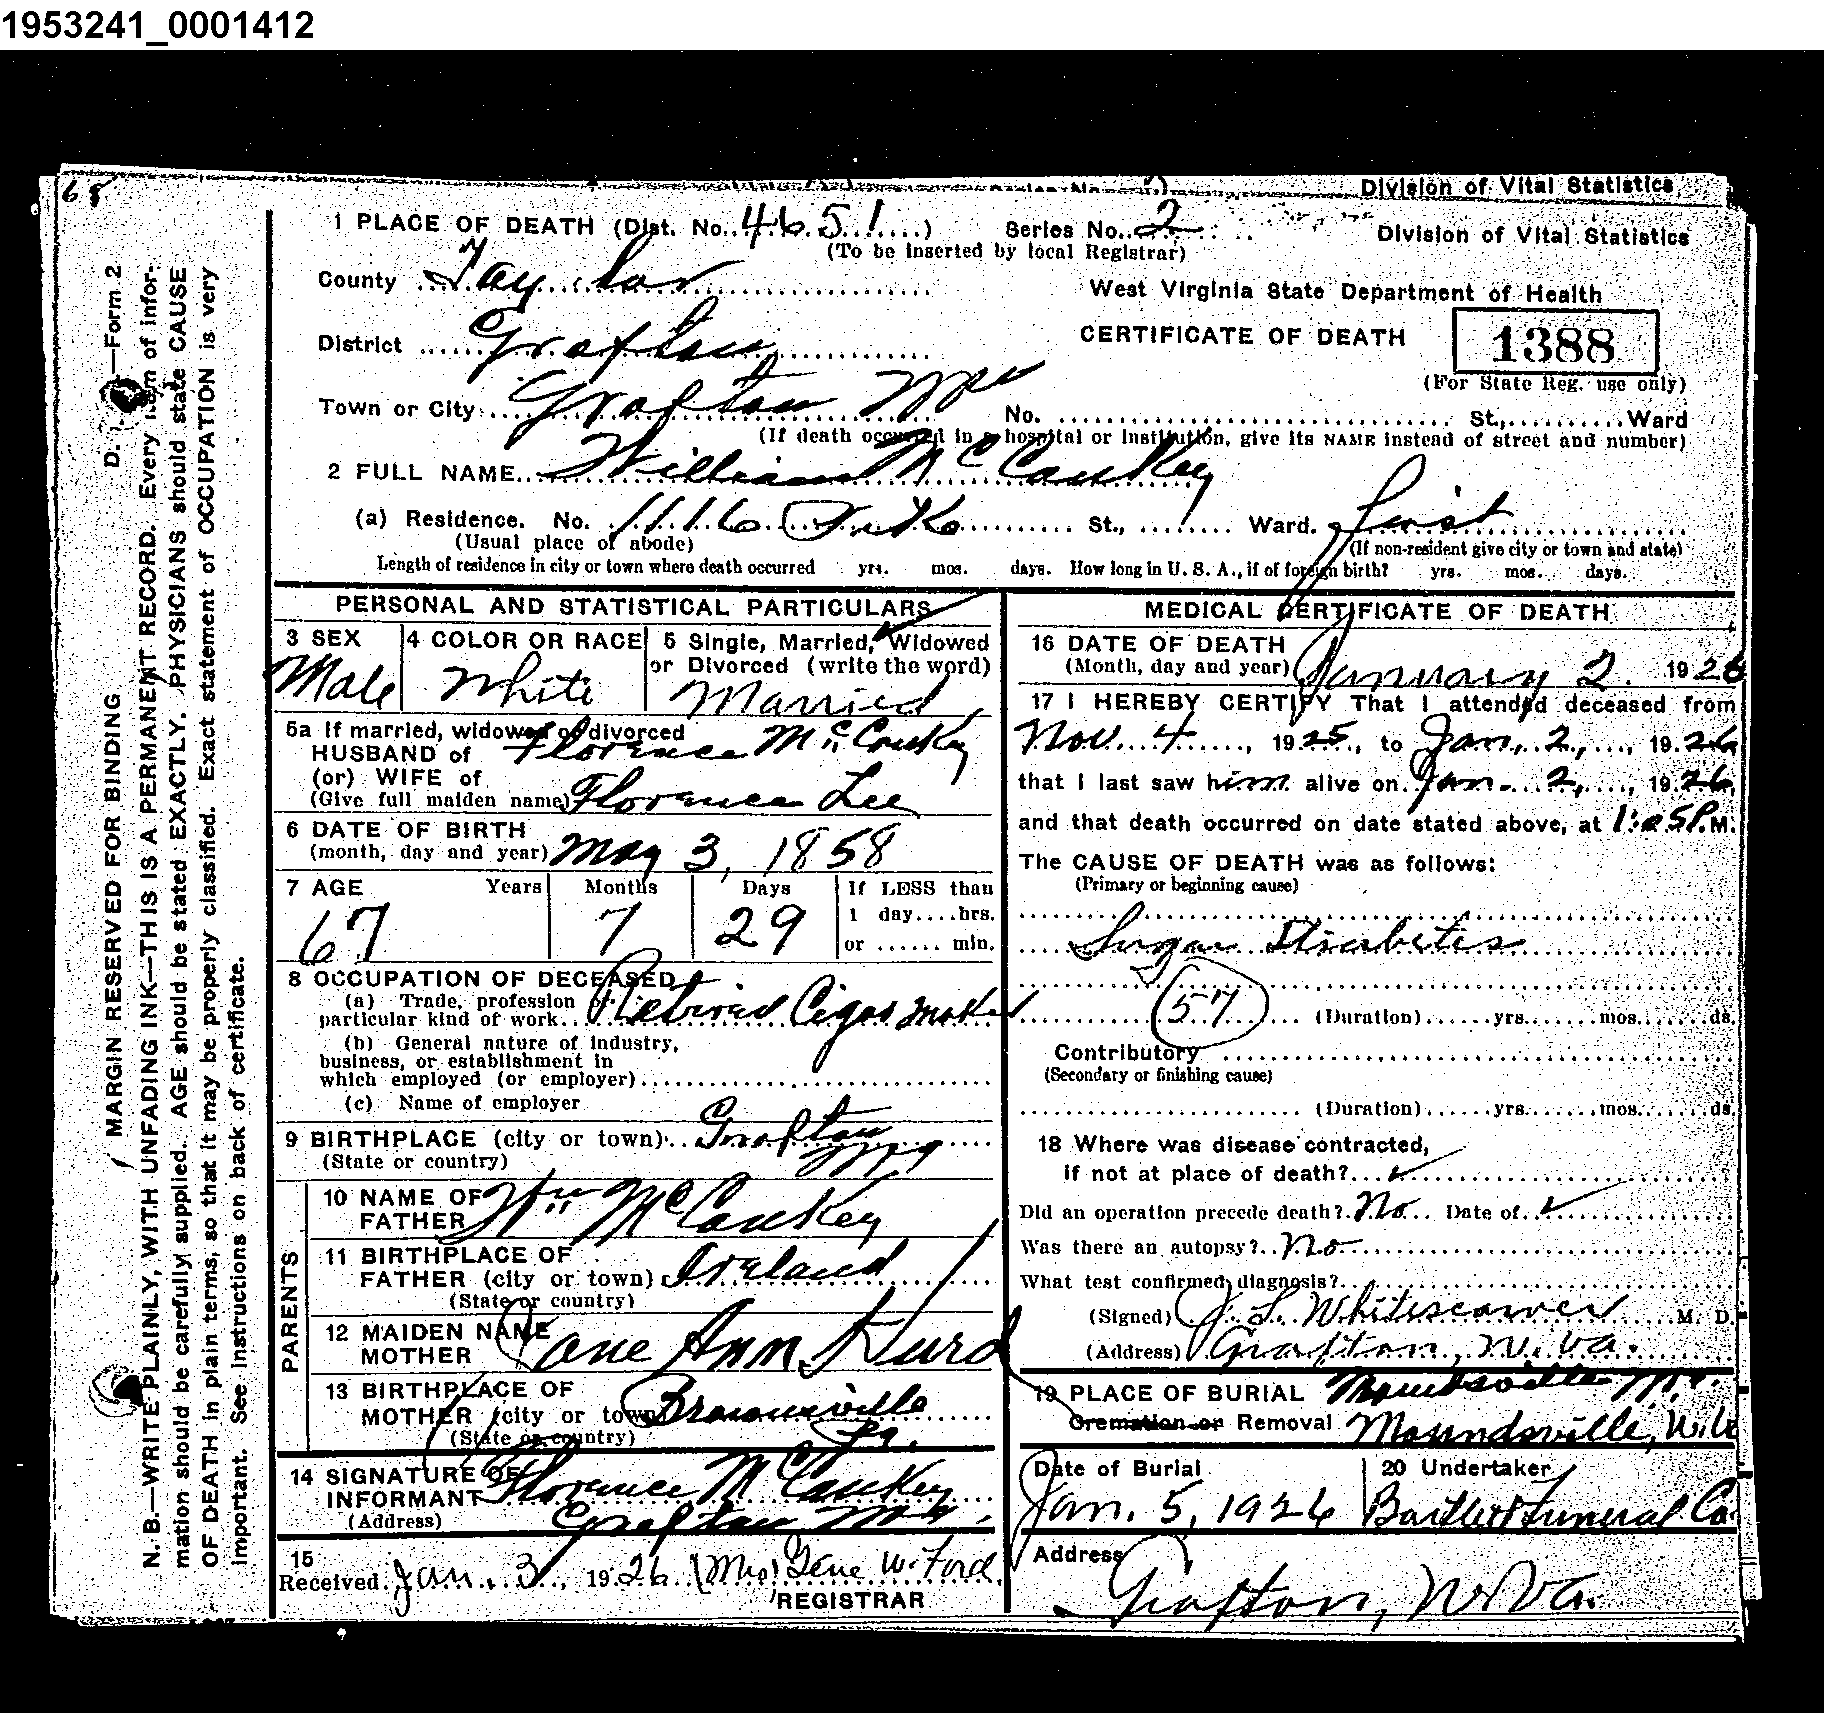 1953241_0001412
68
Division of Vital Statistics
1 PLACE OF DEATH (Dist. No. 4651) Series No. 2 Division of Vital Statistics
(To be inserted by local Registrar)
County Taylor
West Virginia State Department of Health
District Grafton
CERTIFICATE OF DEATH 1388
(For State Reg. use only)
Town or City Grafton No. St., Ward
(If death occurred in a hospital or institution, give its NAME instead of street and number)
2 FULL NAME William McCauKey
(a) Residence. No. 1116 St., Ward. first
(Usual place of abode) (If non-resident give city or town and state)
Length of residence in city or town where death occurred yrs. mos. days. How long in U. S. A., if of foreign birth? yrs. mos. days.
PERSONAL AND STATISTICAL PARTICULARS
3 SEX
Male
4 COLOR OR RACE
White
5 Single, Married, Widowed
or Divorced (write the word)
Married
5a If married, widowed or divorced
HUSBAND of Florence McCauKey
(or) WIFE of
(Give full maiden name) Florence Lee
6 DATE OF BIRTH
(month, day and year) May 3, 1858
7 AGE Years Months Days If LESS than
1 day....hrs.
or ...... min.
67 7 29
8 OCCUPATION OF DECEASED
(a) Trade, profession or
particular kind of work Retired Cigar maker
(b) General nature of industry,
business, or establishment in
which employed (or employer)
(c) Name of employer
9 BIRTHPLACE (city or town) Grafton
(State or country)
PARENTS
10 NAME OF
FATHER Wm McCauKey
11 BIRTHPLACE OF
FATHER (city or town) Ireland
(State or country)
12 MAIDEN NAME
MOTHER Jane Ann Hurd
13 BIRTHPLACE OF
MOTHER (city or town) Brownsville
(State or country) Pa.
14 SIGNATURE OF
INFORMANT Florence McCauKey
(Address) Grafton
15
Received Jan. 3, 1926 (Mrs) Gene W. Ford
REGISTRAR
MEDICAL CERTIFICATE OF DEATH
16 DATE OF DEATH
(Month, day and year) January 2. 1926
17 I HEREBY CERTIFY That I attended deceased from
Nov. 4, 1925, to Jan. 2, 1926
that I last saw him alive on Jan. 2, 1926,
and that death occurred on date stated above, at 1:05 P.M.
The CAUSE OF DEATH was as follows:
(Primary or beginning cause)
Sugar Diabetis
57 (Duration) yrs. mos. ds.
Contributory
(Secondary or finishing cause)
(Duration) yrs. mos. ds.
18 Where was disease contracted,
if not at place of death?
Did an operation precede death? No Date of
Was there an autopsy? No
What test confirmed diagnosis?
(Signed) J. L. Whitescarver M. D.
(Address) Grafton, W. Va.
19 PLACE OF BURIAL Moundsville
Cremation or Removal Moundsville, W. Va
Date of Burial
Jan. 5, 1926
20 Undertaker
Bartlett Funeral Co.
Address
Grafton, W. Va.
D. —Form 2
MARGIN RESERVED FOR BINDING
N. B.—WRITE PLAINLY, WITH UNFADING INK—THIS IS A PERMANENT RECORD. Every item of infor-
mation should be carefully supplied. AGE should be stated EXACTLY. PHYSICIANS should state CAUSE
OF DEATH in plain terms, so that it may be properly classified. Exact statement of OCCUPATION is very
important. See instructions on back of certificate.